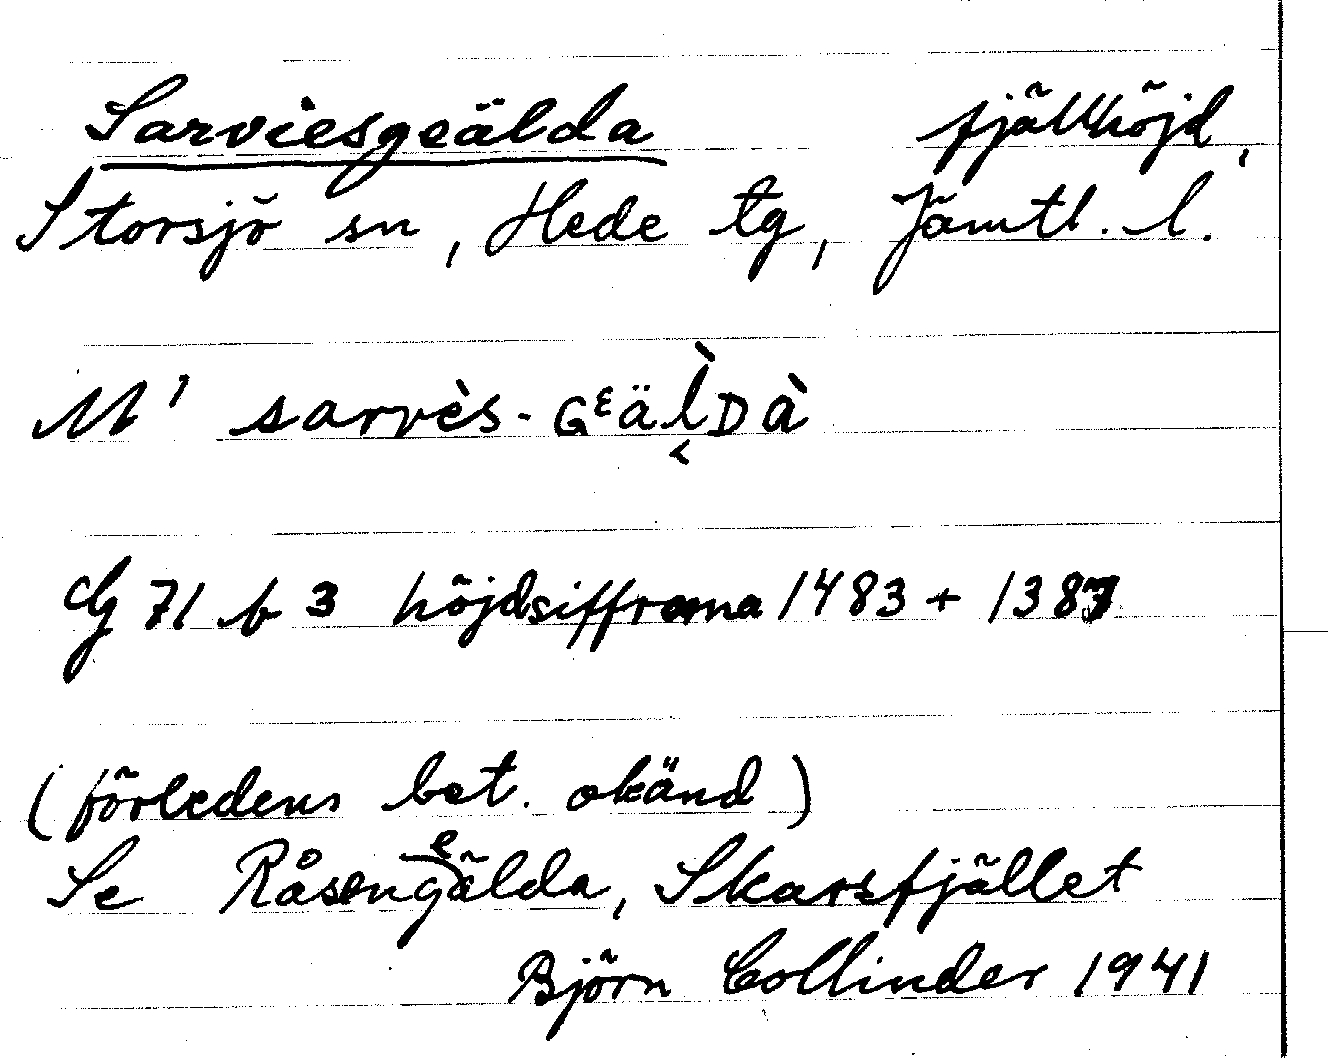 Sarviesgeälda fjällhöjd,
Storsjö sn, Hede tg, Jämtl. l.
M¹ sarvès-Gᵋäl̀Dà
Gg 71 b 3 höjdsiffrorna 1483 + 1387
(förledens bet. okänd)
Se Råsengeälda, Skarsfjället
Björn Collinder 1941